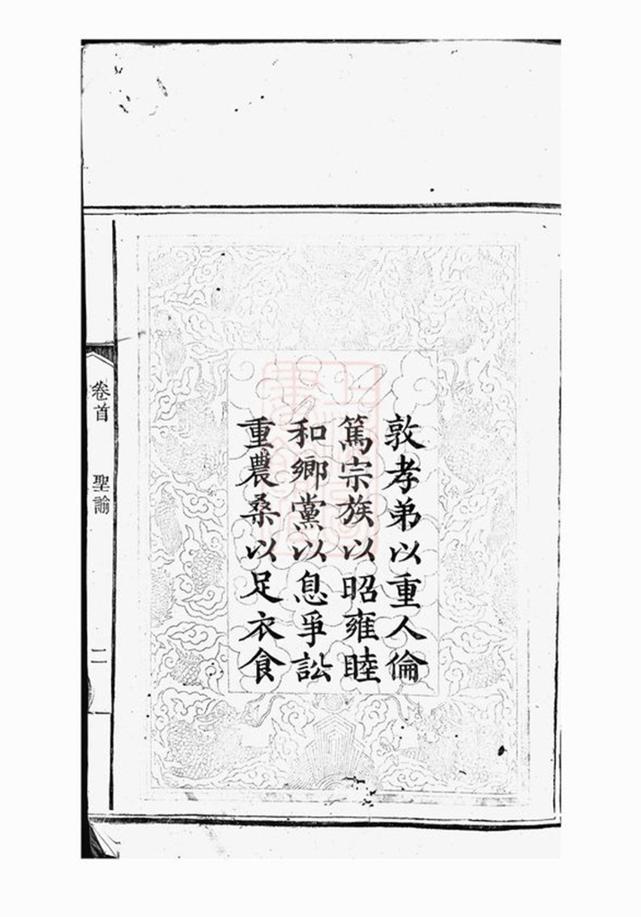 敦孝弟以重人倫
篤宗族以昭雍睦
和鄉黨以息爭訟
重農桑以足衣食
卷首　聖諭　二